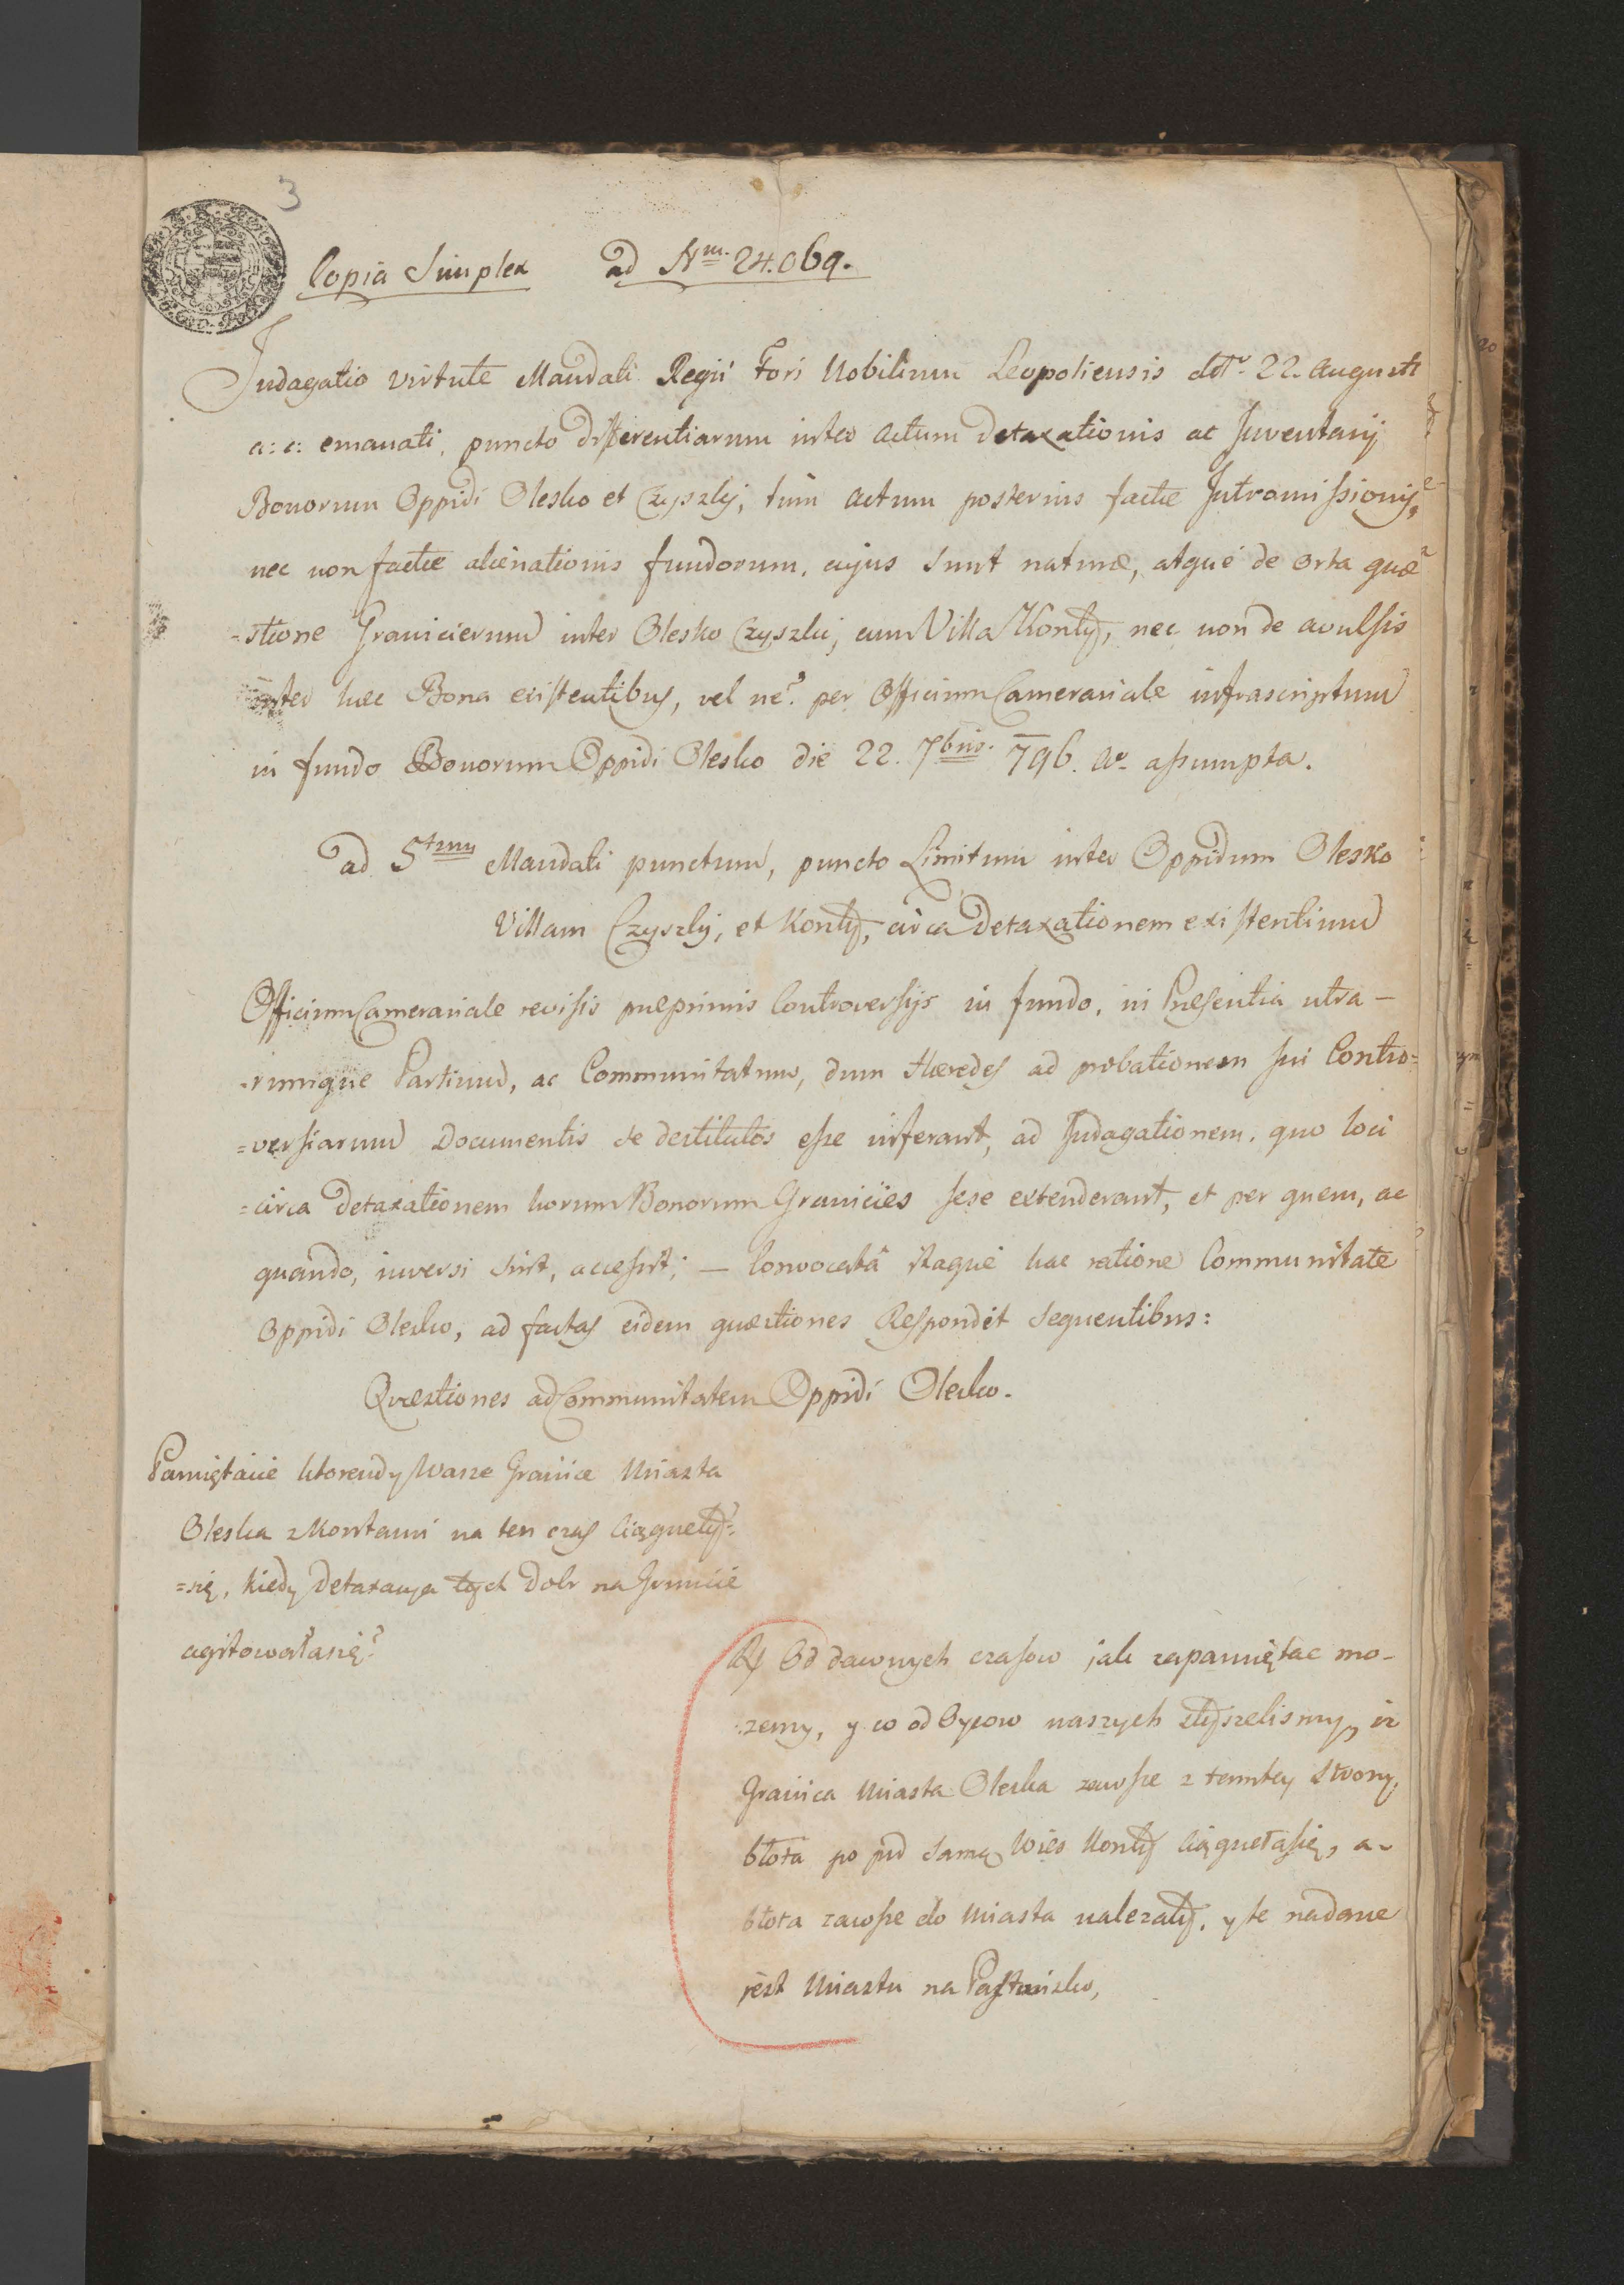 3
Copia Simplex ad Nm. 24.069.
Indagatio virtute Mandati Regii Fori Nobilium Leopoliensis dtt. 22. Augusti
a: c: emanati, puncto differentiarum inter actum detaxationis ac Inventarij
Bonorum Oppidi Olesko et Czyszky, tum actum posterius factæ Intromissionis,
nec non factæ alienationis fundorum, cujus sunt naturæ, atque de orta quæ
=stione Granicierum inter Olesko Czyszki, cum Villa Konty, nec non de avulsis
inter hæc Bona existentibus, vel ne? per Officium Camerariale infrascriptum
in fundo Bonorum Oppidi Olesko die 22. 7bris. 796. assumpta.
ad 5tum Mandati punctum, puncto Limitum inter Oppidum Olesko
Villam Czyszky, et Konty, circa Detaxationem existentium
Officium Camerariale revisis præprimis Controversijs in fundo, in Præsentia utra-
=rumque Partium, ac Communitatum, dum Hæredes ad probationem sui Contro=
=versiarum Documentis se destitutos esse inferant, ad Indagationem, quo loci
=circa Detaxationem horum Bonorum Granicies sese extenderant, et per quem, ac
quando, inversi sint, accessit; — Convocatâ itaque hac ratione Communitate
Oppidi Olesko, ad factas eidem quæstiones Respondit sequentibus:
Quæstiones ad Communitatem Oppidi Olesko.
Pamiętacie ktorendy Wasze Granice Miasta
Oleska z Kontami na ten czas ciągneły=
=się, kiedy Detaxacya tych Dobr na Gruncie
agitowała się?
Rx Od dawnych czasow jak zapamiętac mo-
zemy, y co od Oycow naszych słyszelismy, iz
Granica Miasta Oleska zawsze z tamtey strony
błota po pod samą Wies Konty ciągneła się, a-
błota zawsze do Miasta nalezały, y te nadane
jest Miastu na Pastwisko,